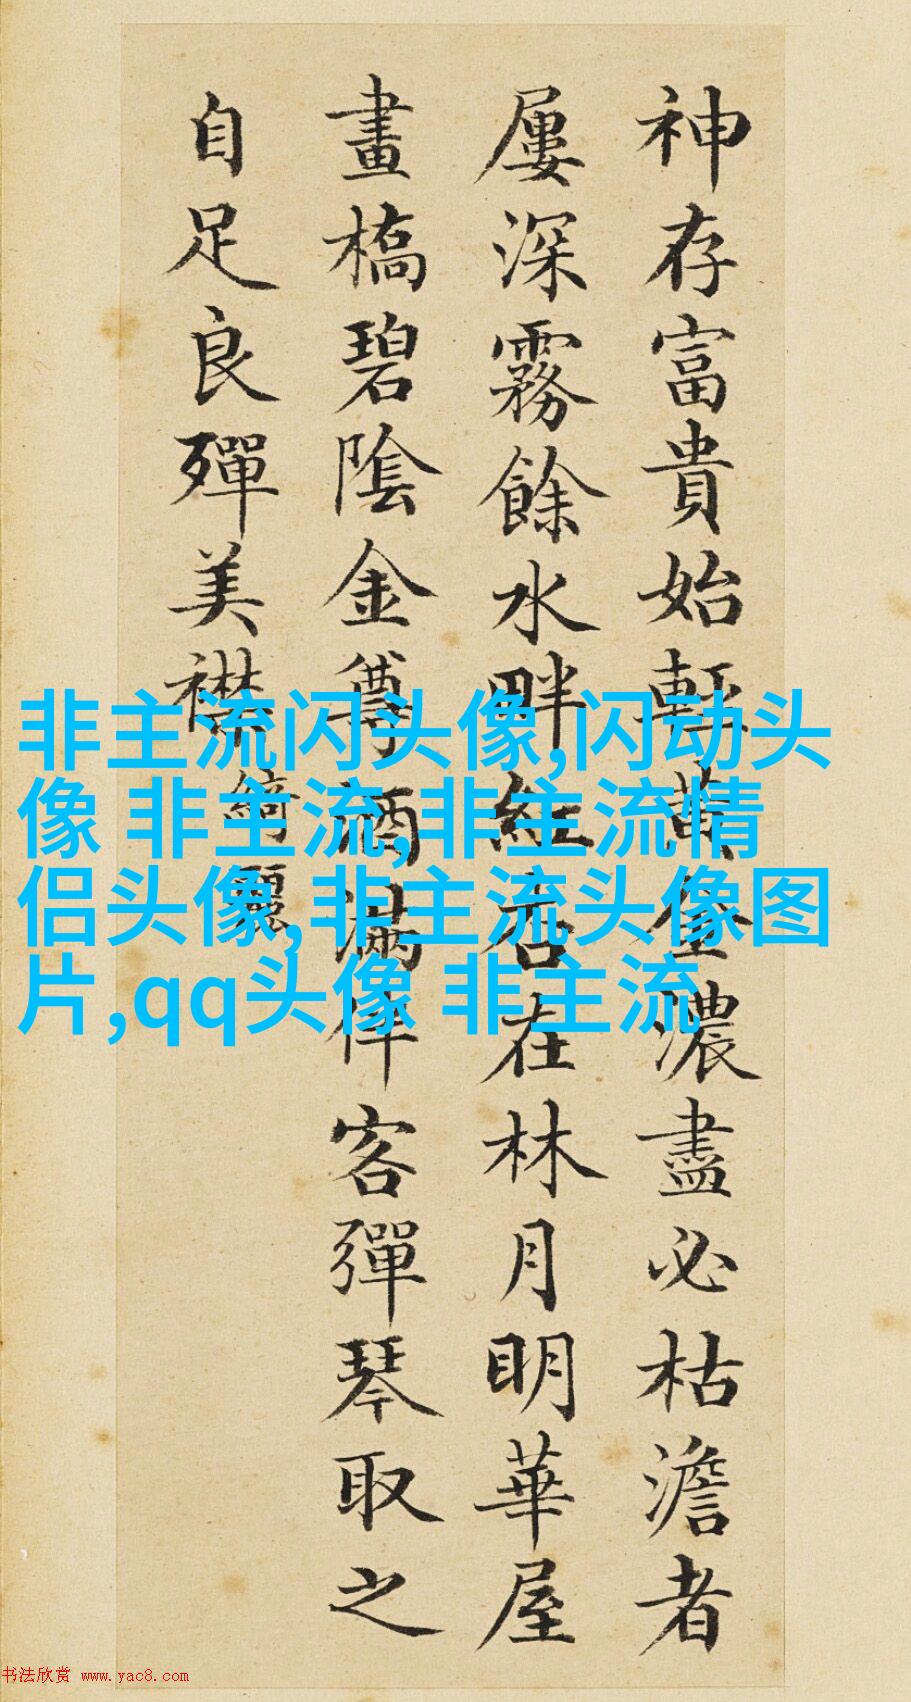 神存富貴始輕黃金濃盡必枯澹者
屢深霧餘水畔紅杏在林月明華屋
畫橋碧陰金尊酒滿伴客彈琴取之
自足良殫美襟
綺麗
非主流闪头像,闪动头
像 非主流,非主流情
侣头像,非主流头像图
片,qq头像 非主流
书法欣赏 www.yac8.com